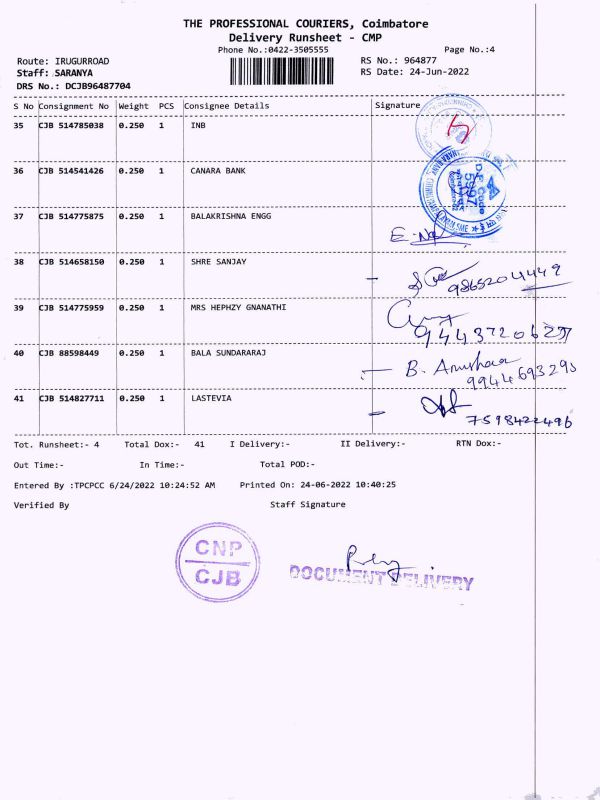 THE PROFESSIONAL COURIERS, Coimbatore
Delivery Runsheet - CMP
Phone No.:0422-3505555 Page No.:4
Route: IRUGURROAD RS No.: 964877
Staff: SARANYA RS Date: 24-Jun-2022
DRS No.: DCJB96487704
S No Consignment No Weight PCS Consignee Details Signature
35 CJB 514785038 0.250 1 INB
36 CJB 514541426 0.250 1 CANARA BANK
37 CJB 514775875 0.250 1 BALAKRISHNA ENGG
38 CJB 514658150 0.250 1 SHRE SANJAY
9865204449
39 CJB 514775959 0.250 1 MRS HEPHZY GNANATHI
9443720627
40 CJB 88598449 0.250 1 BALA SUNDARARAJ B. Anushaa
9944693295
41 CJB 514827711 0.250 1 LASTEVIA
7598422496
Tot. Runsheet:- 4 Total Dox:- 41 I Delivery:- II Delivery:- RTN Dox:-
Out Time:- In Time:- Total POD:-
Entered By :TPCPCC 6/24/2022 10:24:52 AM Printed On: 24-06-2022 10:40:25
Verified By Staff Signature
CNP
CJB
DOCUMENT DELIVERY